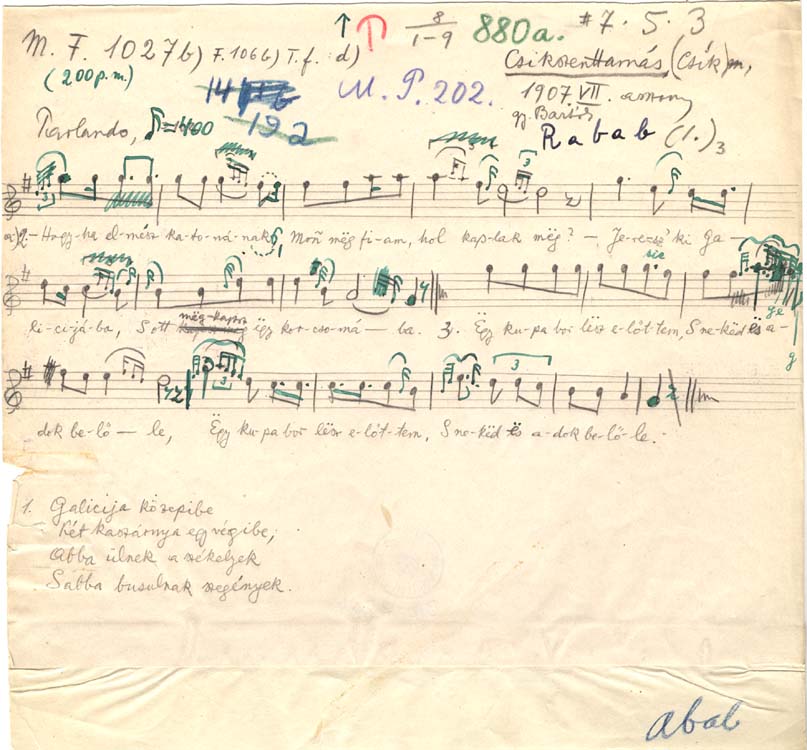 8
1-9
880a. #7. 5. 3
M. F. 1027b) F. 106b) T. f. d)
(200 p.m.)
Csikszenttamás, (Csík)m,
M. P. 202.
1907. VII. asszony
gy. Bartók
192
Parlando, =400
Rabab (1.) 3
a) 2. - Hogy-ha el-mész ka-to-ná-nak, Moñ mëg fi-am, hol kap-lak mëg? - Je-re ki Ga-
li-ci-já-ba, S ott mëg-kapsz ëgy kor-cso-má - ba. 3. Ëgy ku-pa bor lësz e-lőt-tem, S ne-këd ës a-
dok be-lő - le, Ëgy ku-pa bor lësz e-lőt-tem, S ne-këd ës a-dok be-lő-le.-
1. Galicija közepibe
Két kaszárnya egy végibe;
Abba ülnek a székelyek
S abba busulnak szegények.
abab